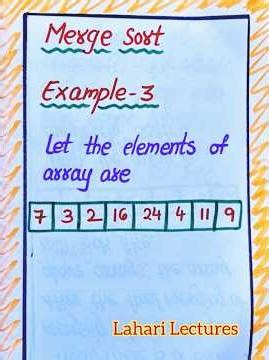 Merge Sort
Example-3
Let the elements of
array are
7 3 2 16 24 4 11 9
Lahari Lectures